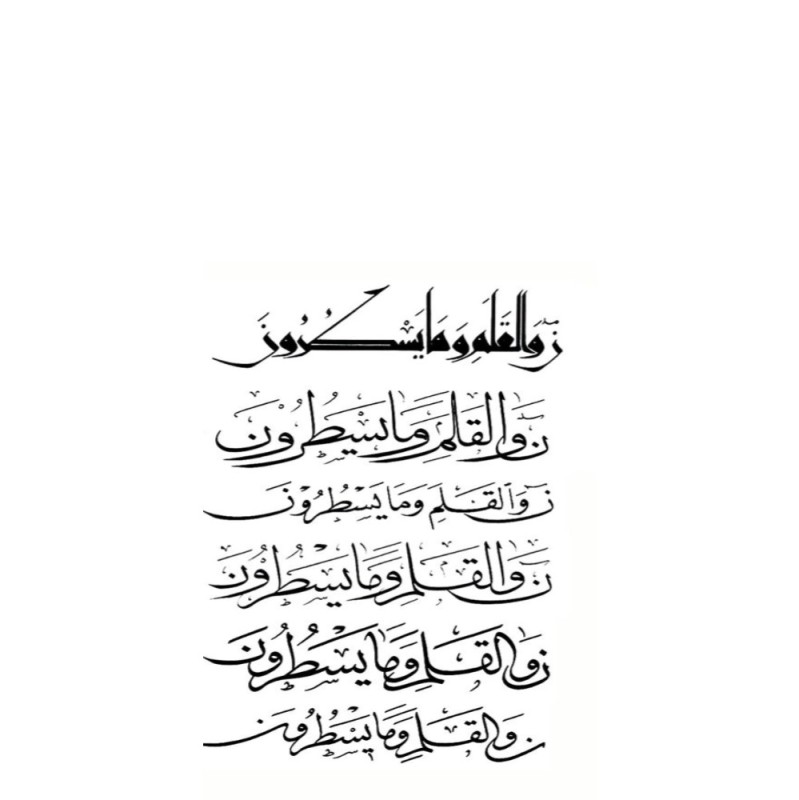 نۤ وَالْقَلَمِ وَمَا يَسْطُرُونَ
نۤ وَالْقَلَمِ وَمَا يَسْطُرُونَ
نۤ وَالْقَلَمِ وَمَا يَسْطُرُونَ
نۤ وَالْقَلَمِ وَمَا يَسْطُرُونَ
نۤ وَالْقَلَمِ وَمَا يَسْطُرُونَ
نۤ وَالْقَلَمِ وَمَا يَسْطُرُونَ